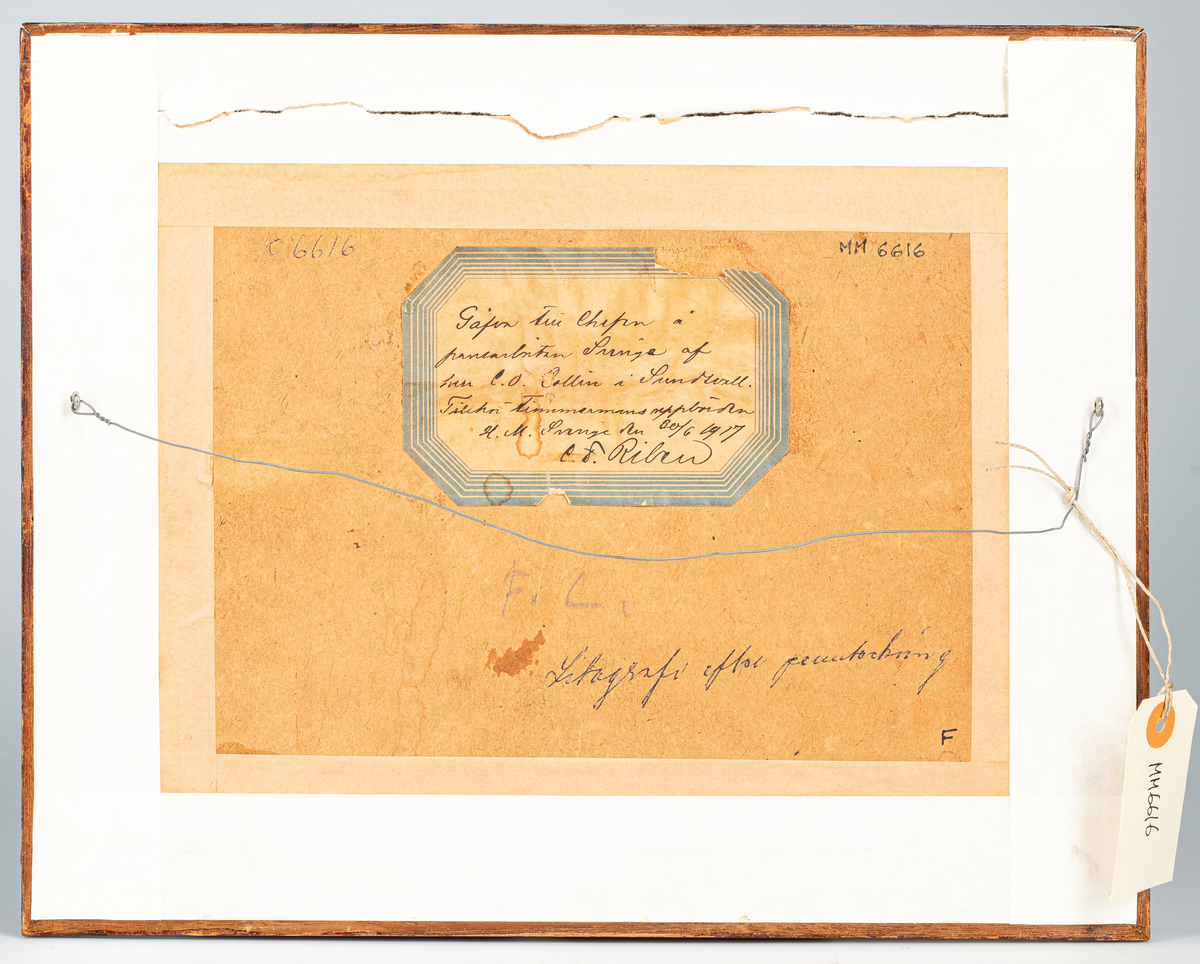 K 6616
MM 6616
Gåfva till Chefen å
pansarbåten Sverige af
herr C. O. Collin i Sundsvall.
Tillhör timmermans uppbörden
H. M. Sverige den 30/6 1917
C. F. Riben
F. C.
Litografi efter pennteckning
F
MM6616